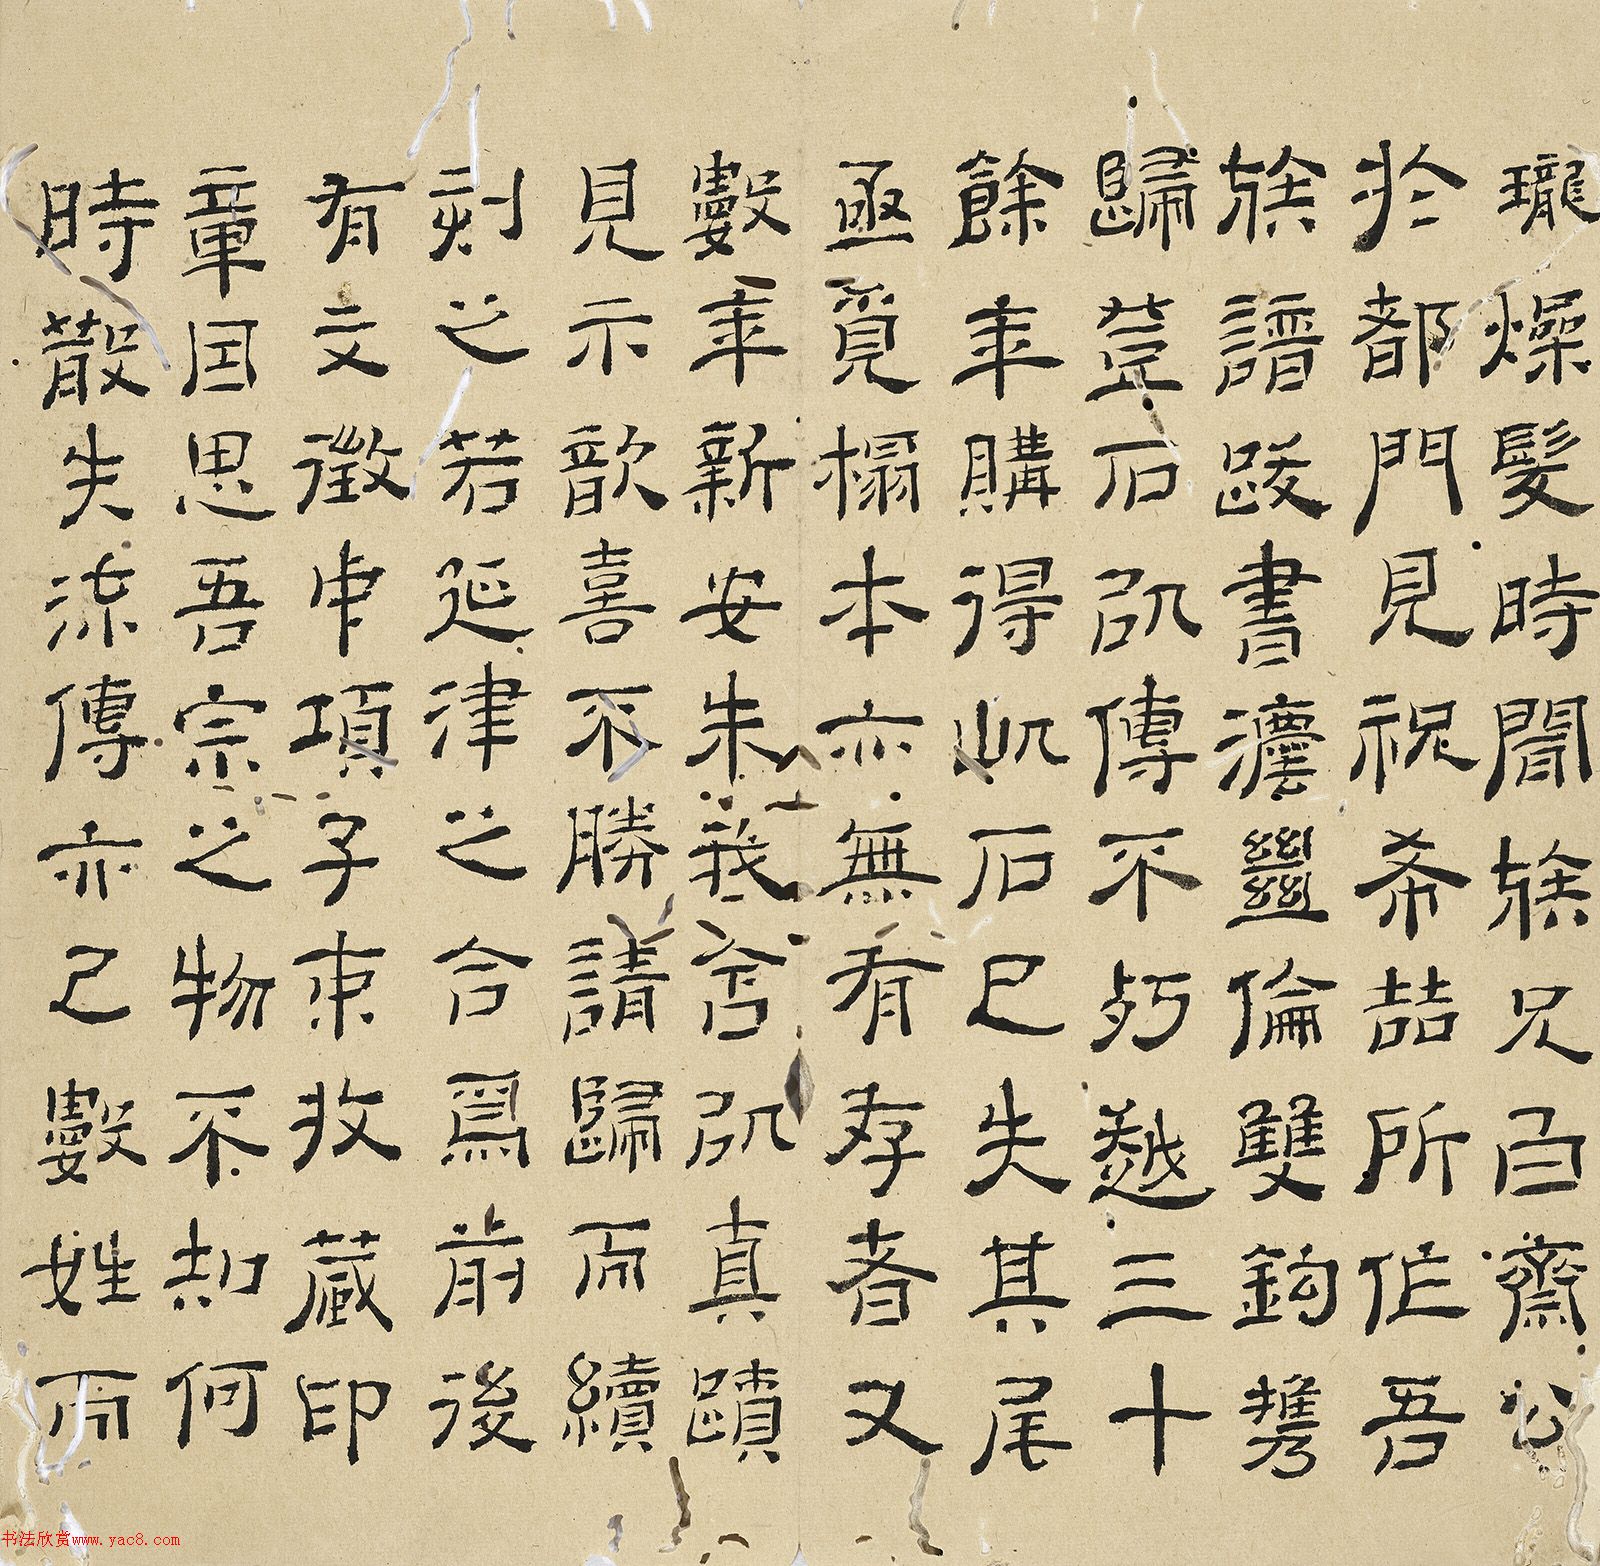 瓏燥髮時聞族兄白齋公
於都門見祝希喆所作吾
族譜跋書灋𢇍倫雙鉤携
歸登石以傳不朽越三十
餘年購得此石已失其尾
亟覓榻本亦無有存者又
數年新安朱我以真蹟
見示歆喜不勝請歸而續
刻之若延津之合焉前後
有文徵中項子京收藏印
章因思吾宗之物不知何
時散失流傳亦已數姓而
书法欣赏www.yac8.com